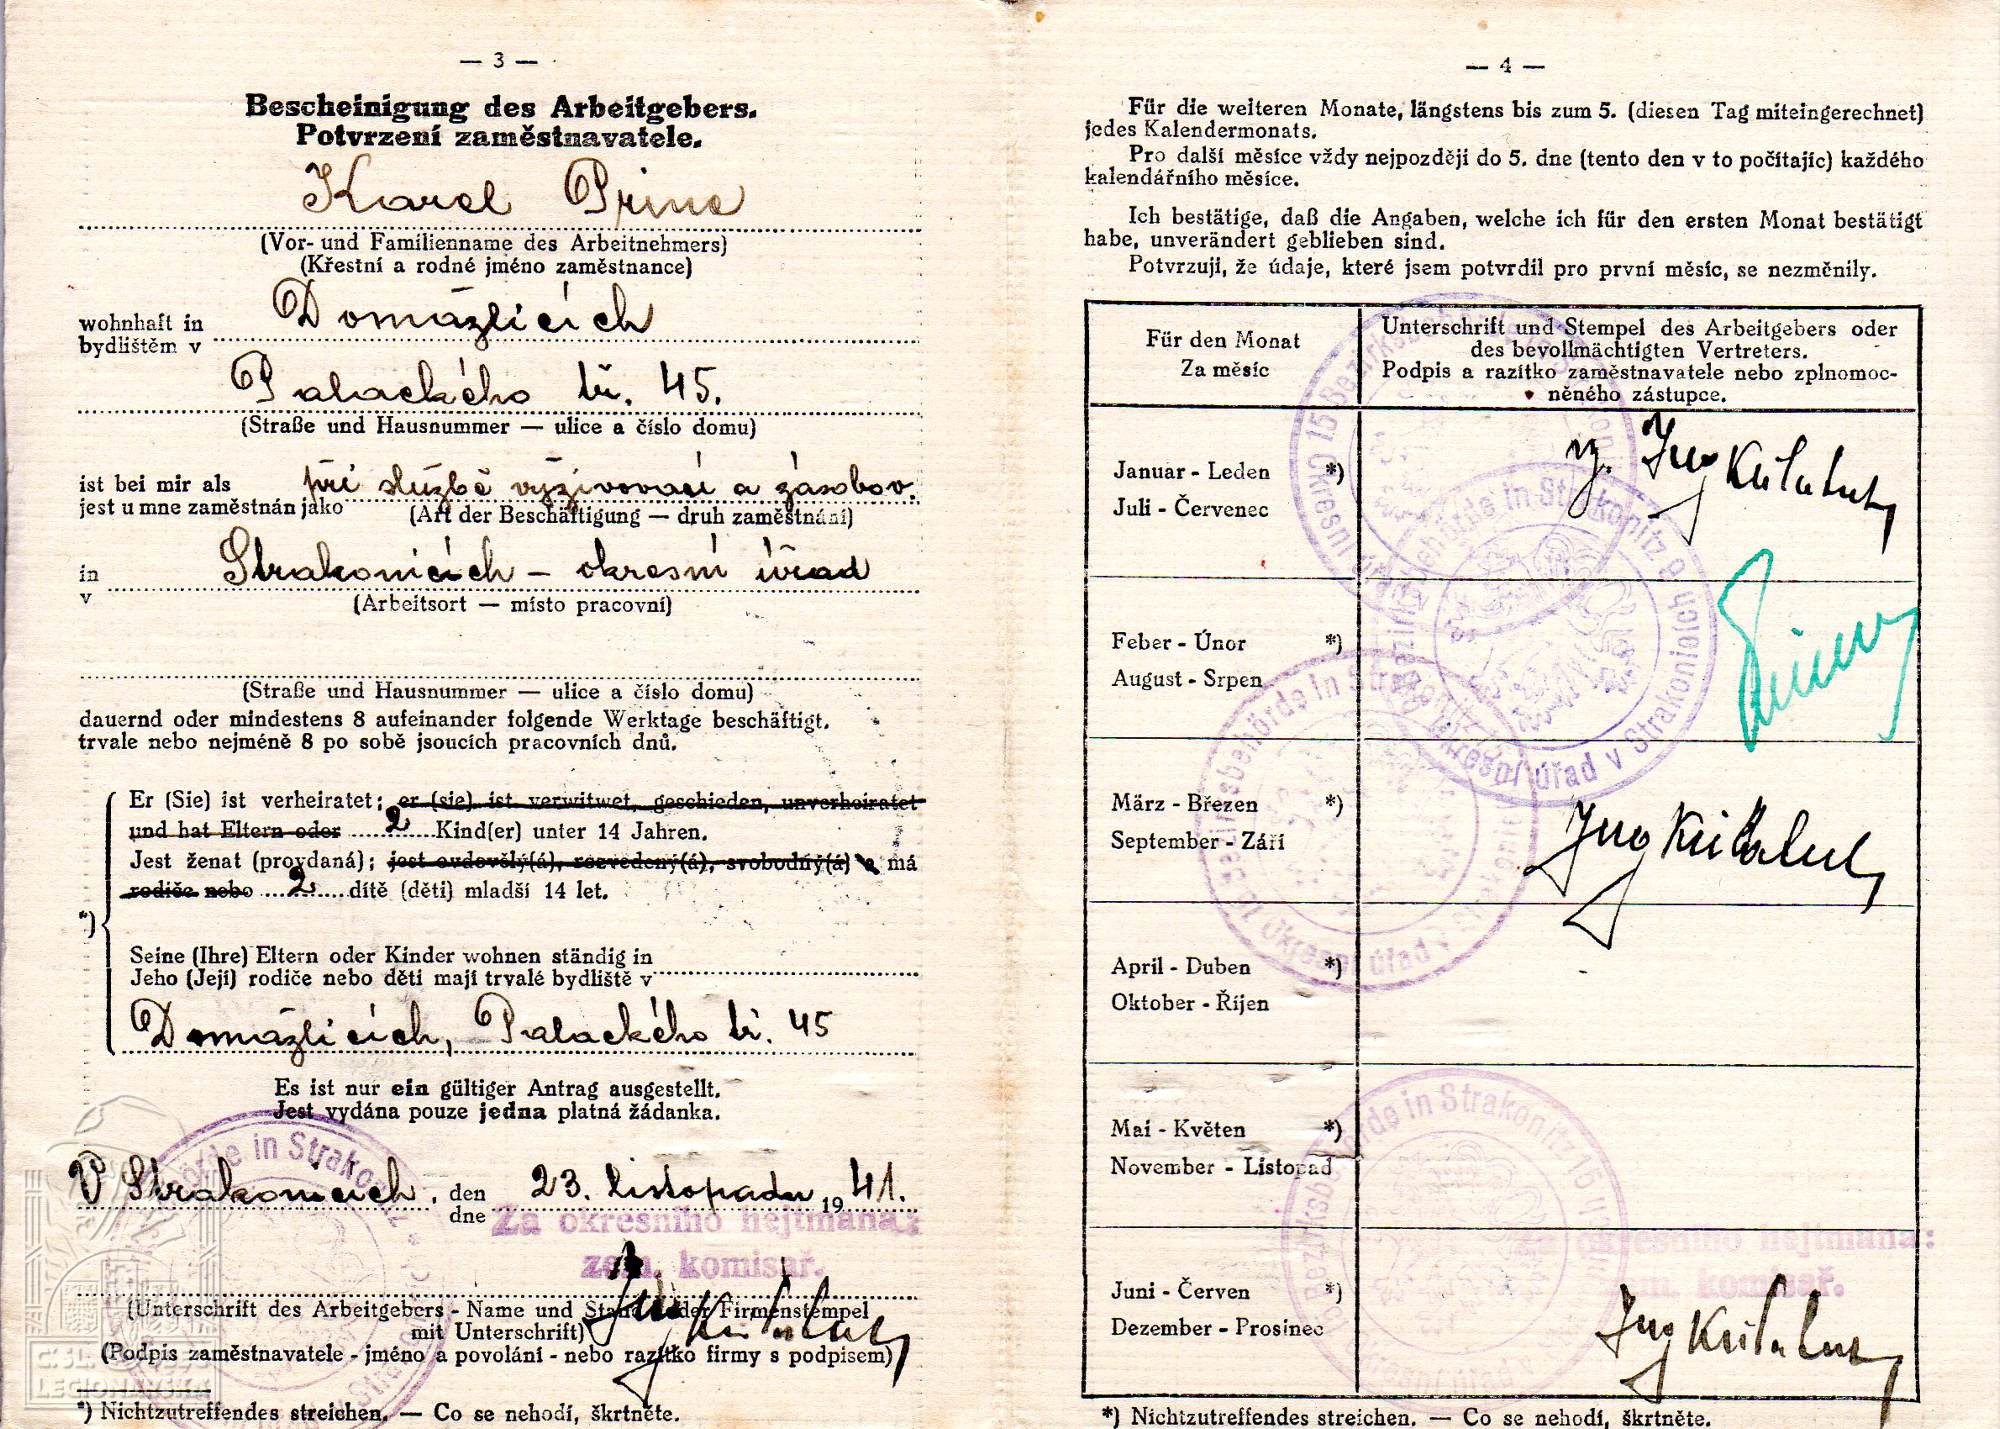 — 3 —
Bescheinigung des Arbeitgebers.
Potvrzení zaměstnavatele.
Karel Princ
(Vor- und Familienname des Arbeitnehmers)
(Křestní a rodné jméno zaměstnance)
wohnhaft in
bydlištěm v
Domážlicích
Palackého tř. 45.
(Straße und Hausnummer — ulice a číslo domu)
ist bei mir als
jest u mne zaměstnán jako
při službě vyživovací a zásobov.
(Art der Beschäftigung — druh zaměstnání)
in
v
Strakonicích - okresní úřad
(Arbeitsort — místo pracovní)
(Straße und Hausnummer — ulice a číslo domu)
dauernd oder mindestens 8 aufeinander folgende Werktage beschäftigt.
trvale nebo nejméně 8 po sobě jsoucích pracovních dnů.
Er (Sie) ist verheiratet; er (sie) ist verwitwet, geschieden, unverheiratet
und hat Eltern oder 2 Kind(er) unter 14 Jahren.
Jest ženat (provdaná); jest ovdovělý(á), rozvedený(á), svobodný(á) a má
rodiče nebo 2 dítě (děti) mladší 14 let.
*)
Seine (Ihre) Eltern oder Kinder wohnen ständig in
Jeho (Její) rodiče nebo děti mají trvalé bydliště v
Domážlicích, Palackého tř. 45
Es ist nur ein gültiger Antrag ausgestellt.
Jest vydána pouze jedna platná žádanka.
V Strakonicích, den
dne
23. listopadu 1941.
Za okresního hejtmana:
zem. komisař.
(Unterschrift des Arbeitgebers - Name und Stand oder Firmenstempel
mit Unterschrift)
(Podpis zaměstnavatele - jméno a povolání - nebo razítko firmy s podpisem)
*) Nichtzutreffendes streichen. — Co se nehodí, škrtněte.
ČSL.
LEGIONÁŘSKÁ
— 4 —
Für die weiteren Monate, längstens bis zum 5. (diesen Tag miteingerechnet)
jedes Kalendermonats.
Pro další měsíce vždy nejpozději do 5. dne (tento den v to počítajíc) každého
kalendářního měsíce.
Ich bestätige, daß die Angaben, welche ich für den ersten Monat bestätigt
habe, unverändert geblieben sind.
Potvrzuji, že údaje, které jsem potvrdil pro první měsíc, se nezměnily.
Für den Monat
Za měsíc
Unterschrift und Stempel des Arbeitgebers oder
des bevollmächtigten Vertreters.
Podpis a razítko zaměstnavatele nebo zplnomoc-
něného zástupce.
Januar - Leden *)
Juli - Červenec
Feber - Únor *)
August - Srpen
Bezirksbehörde in Strakonitz
Okresní úřad v Strakonicích
März - Březen *)
September - Září
April - Duben *)
Oktober - Říjen
Mai - Květen *)
November - Listopad
Bezirksbehörde in Strakonitz
Za okresního hejtmana:
zem. komisař.
Juni - Červen *)
Dezember - Prosinec
*) Nichtzutreffendes streichen. — Co se nehodí, škrtněte.